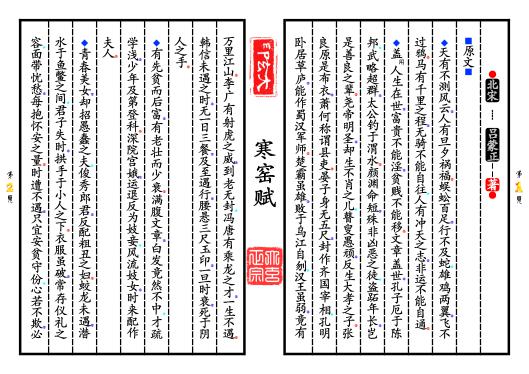 ●北宋…吕蒙正…著●
■原文■
◆天有不测风云人有旦夕祸福蜈蚣百足行不及蛇雄鸡两翼飞不
过鸦马有千里之程无骑不能自往人有冲天之志非运不能自通
◆盖人生在世富贵不能淫贫贱不能移文章盖世孔子厄于陈
邦武略超群太公钓于渭水颜渊命短殊非凶恶之徒盗跖年长岂
是善良之辈尧帝明圣却生不肖之儿瞽叟愚顽反生大孝之子张
良原是布衣萧何称谓县吏晏子身无五尺封作齐国宰相孔明
卧居草庐能作蜀汉军师楚霸虽雄败于乌江自刎汉王虽弱竟有
寒窑赋
万里江山李广有射虎之威到老无封冯唐有乘龙之才一生不遇
韩信未遇之时无一日三餐及至遇行腰悬三尺玉印一旦时衰死于阴
人之手
◆有先贫而后富有老壮而少衰满腹文章白发竟然不中才疏
学浅少年及第登科深院宫娥运退反为妓妾风流妓女时来配作
夫人
◆青春美女却招愚蠢之夫俊秀郎君反配粗丑之妇蛟龙未遇潜
水于鱼鳖之间君子失时拱手于小人之下衣服虽破常存仪礼之
容面带忧愁每抱怀安之量时遭不遇只宜安贫守份心若不欺必